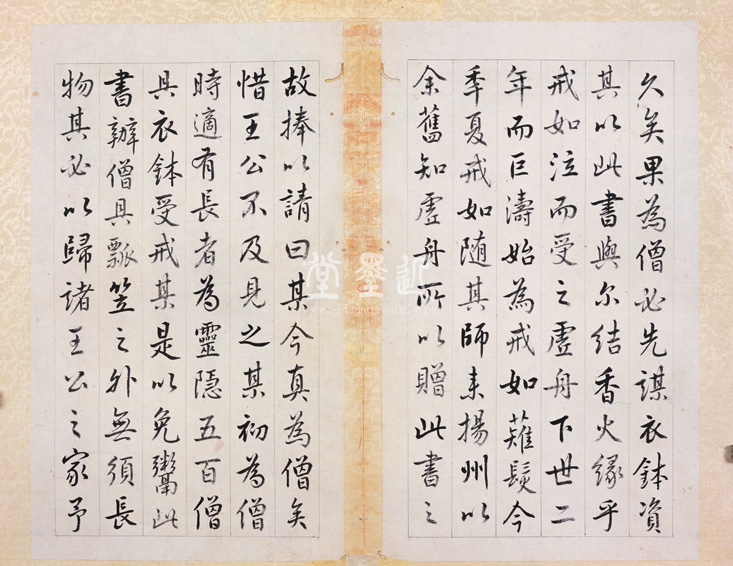 久矣果為僧必先謀衣鉢資
其以此書與尓結香火緣乎
戒如泣而受之虛舟下世二
年而巨濤始為戒如薙髮今
季夏戒如随其師来揚州以
余舊知虛舟所以贈此書之
故捧以請曰某今真為僧矣
惜王公不及見之某初為僧
時適有長者為靈隱五百僧
具衣鉢受戒某是以免鬻此
書辦僧具瓢笠之外無須長
物其必以歸諸王公之家予
近墨堂